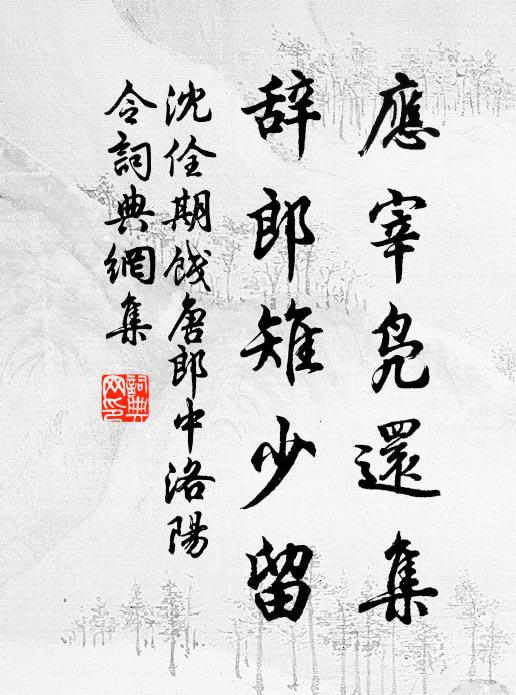 應宰鳧還集
辞郎雉少留
沈佺期餞唐郎中洛陽
令詞典網集
詞典网印